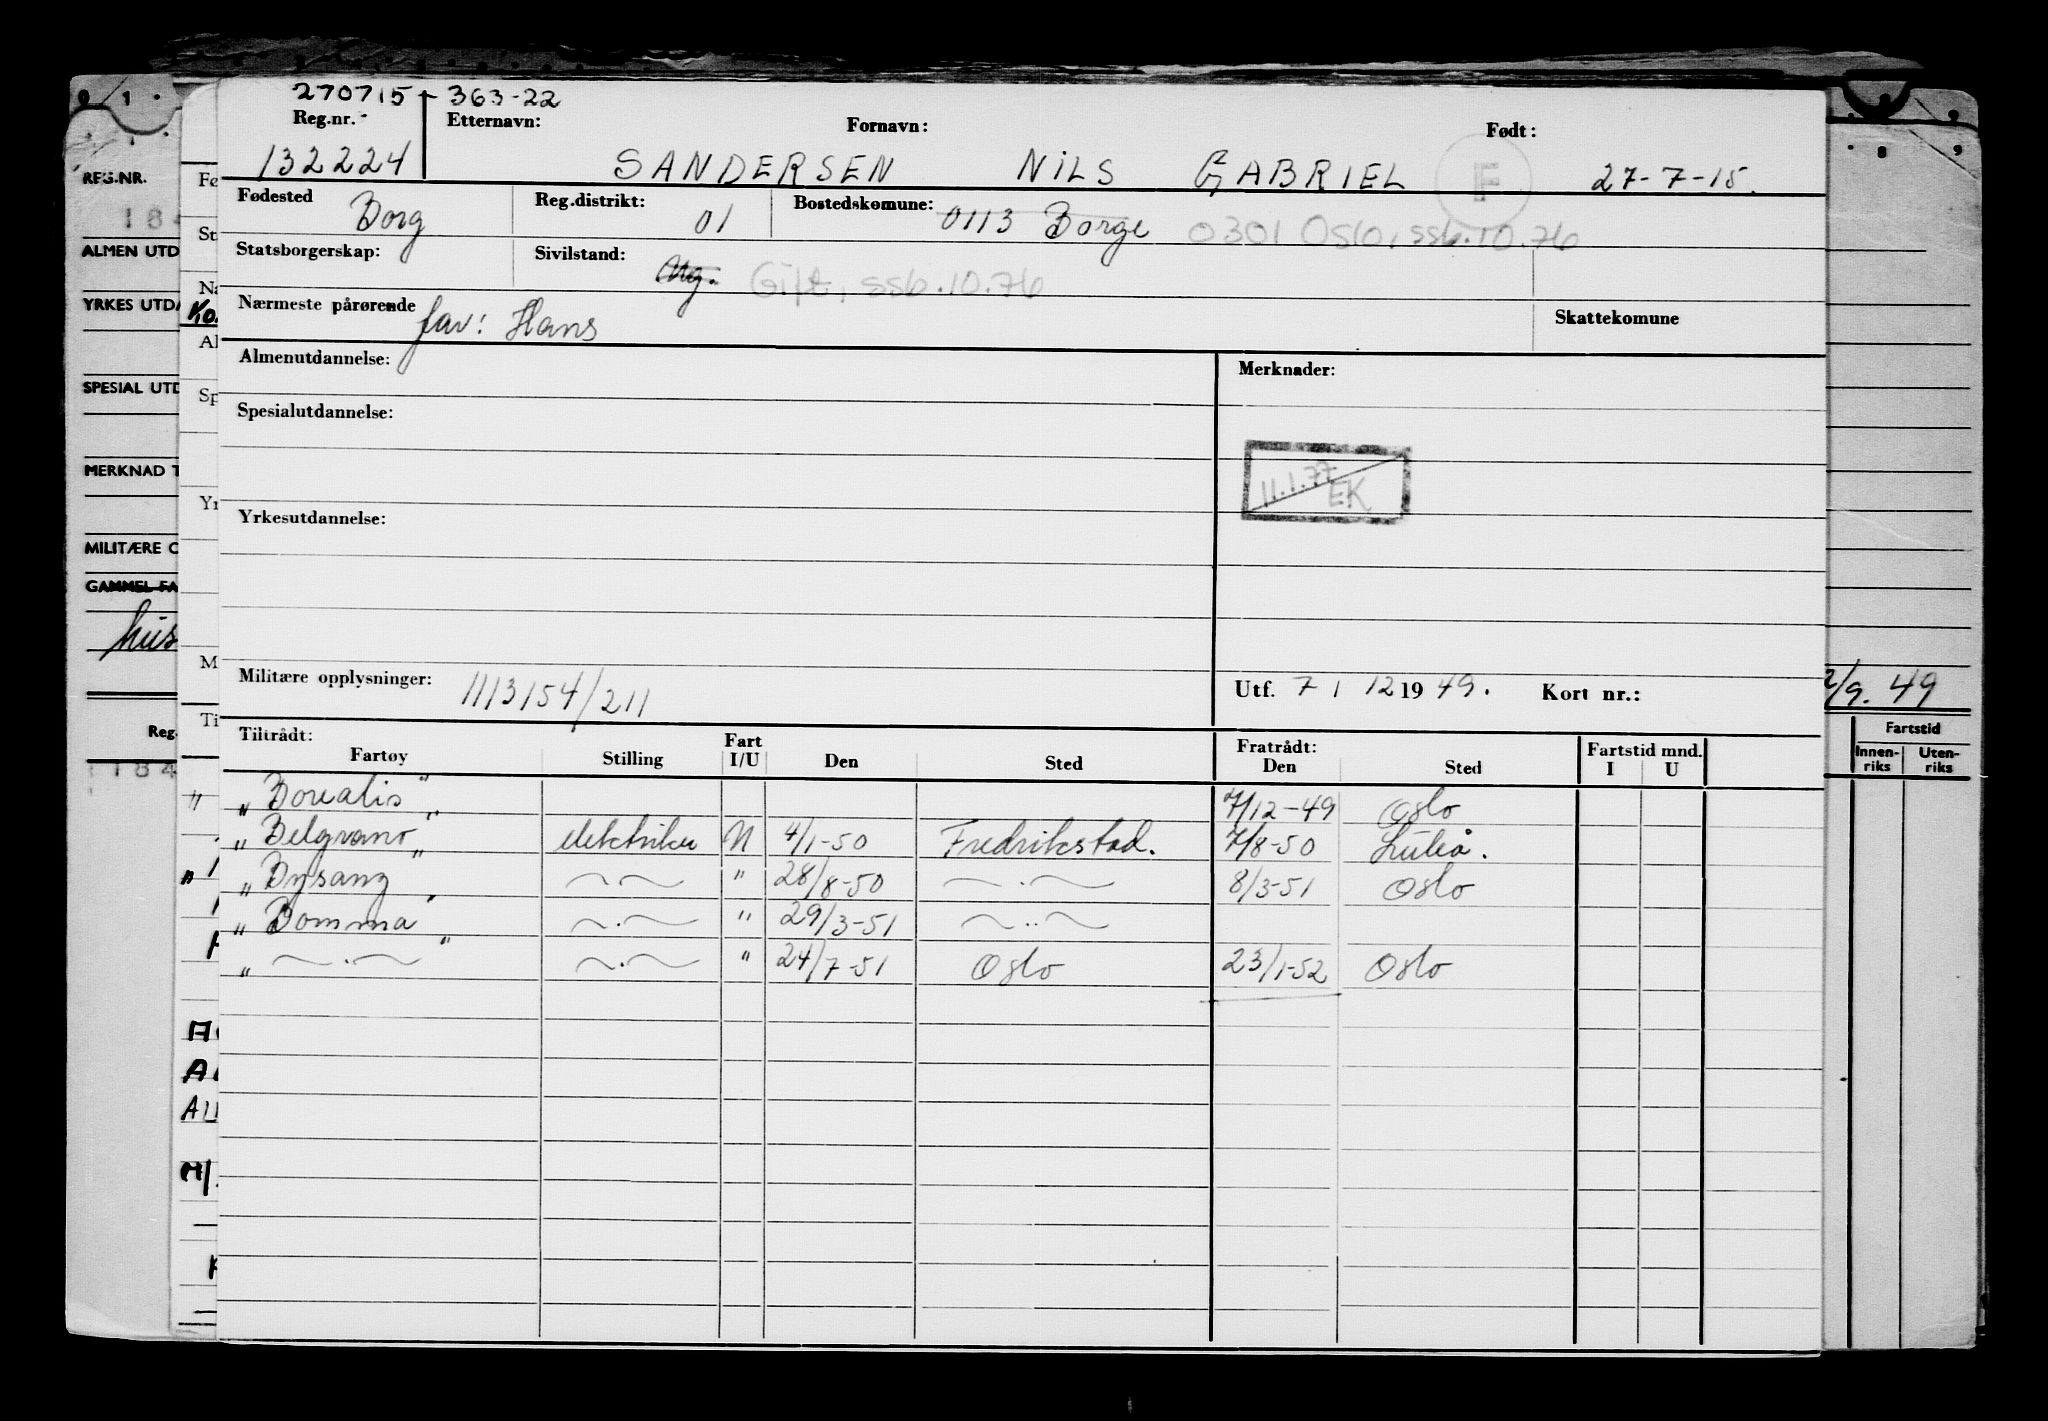 270715 - 363-22
Reg.nr. Etternavn: Fornavn: Født:
132224 SANDERSEN NILS GABRIEL F 27-7-15.
Fødested Borg Reg.distrikt: 01 Bostedskomune: 0113 Borge 0301 Oslo, ssb.10.76
Statsborgerskap: Sivilstand: Ug. Gift, ssb.10.76
Nærmeste pårørende far: Hans Skattekomune
Almenutdannelse: Merknader:
Spesialutdannelse:
11.1.77 EK
Yrkesutdannelse:
Militære opplysninger: 1113154/211 Utf. 7 / 12 19 49. Kort nr.:
Tiltrådt: Fratrådt: Fartstid mnd.
Fartøy Stilling Fart I/U Den Sted Den Sted I U
" Borealis" 7/12-49 Oslo
" Belgrano" elektriker U 4/1-50 Fredrikstad. 7/8-50 Luleå.
" Bysanz " 28/8-50 8/3-51 Oslo
" Bomma" " 29/3-51
" " " 24/7-51 Oslo 23/1-52 Oslo
REG.NR.
184
ALMEN UTD
YRKES UTDA
SPESIAL UTD
MERKNAD T
MILITÆRE O
GAMMEL FA
Reg.
184
2/9. 49
Fartstid
Innen-riks Uten-riks